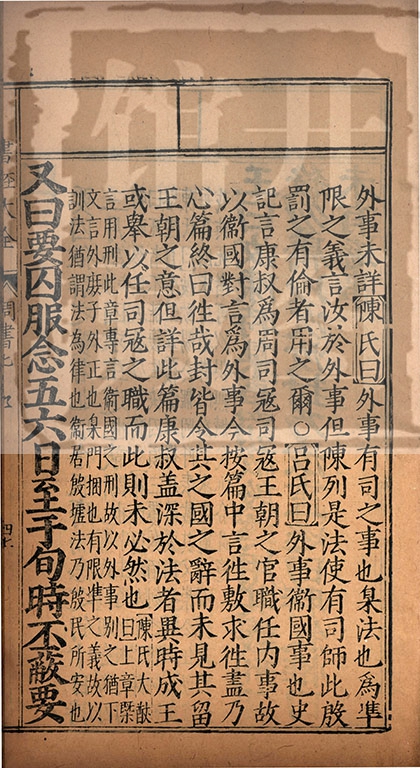 外事未詳陳氏曰外事有司之事也臬法也為準
限之義言汝於外事但陳列是法使有司師此殷
罰之有倫者用之爾○呂氏曰外事衞國事也史
記言康叔為周司寇司寇王朝之官職任内事故
以衞國對言為外事今按篇中言徃敷求徃盡乃
心篇終曰徃哉封皆令其之國之辭而未見其留
王朝之意但詳此篇康叔盖深於法者異時成王
或舉以任司寇之職而此則未必然也陳氏大猷曰上章槩
言用刑此章專言衞國之刑故以外事別之猶下
文言外庶子外正也臬門捆也有限準之義故以
訓法猶謂法為律也衞居殷墟法乃殷民所安也
又曰要囚服念五六日至于旬時丕蔽要
書經大全 周書七